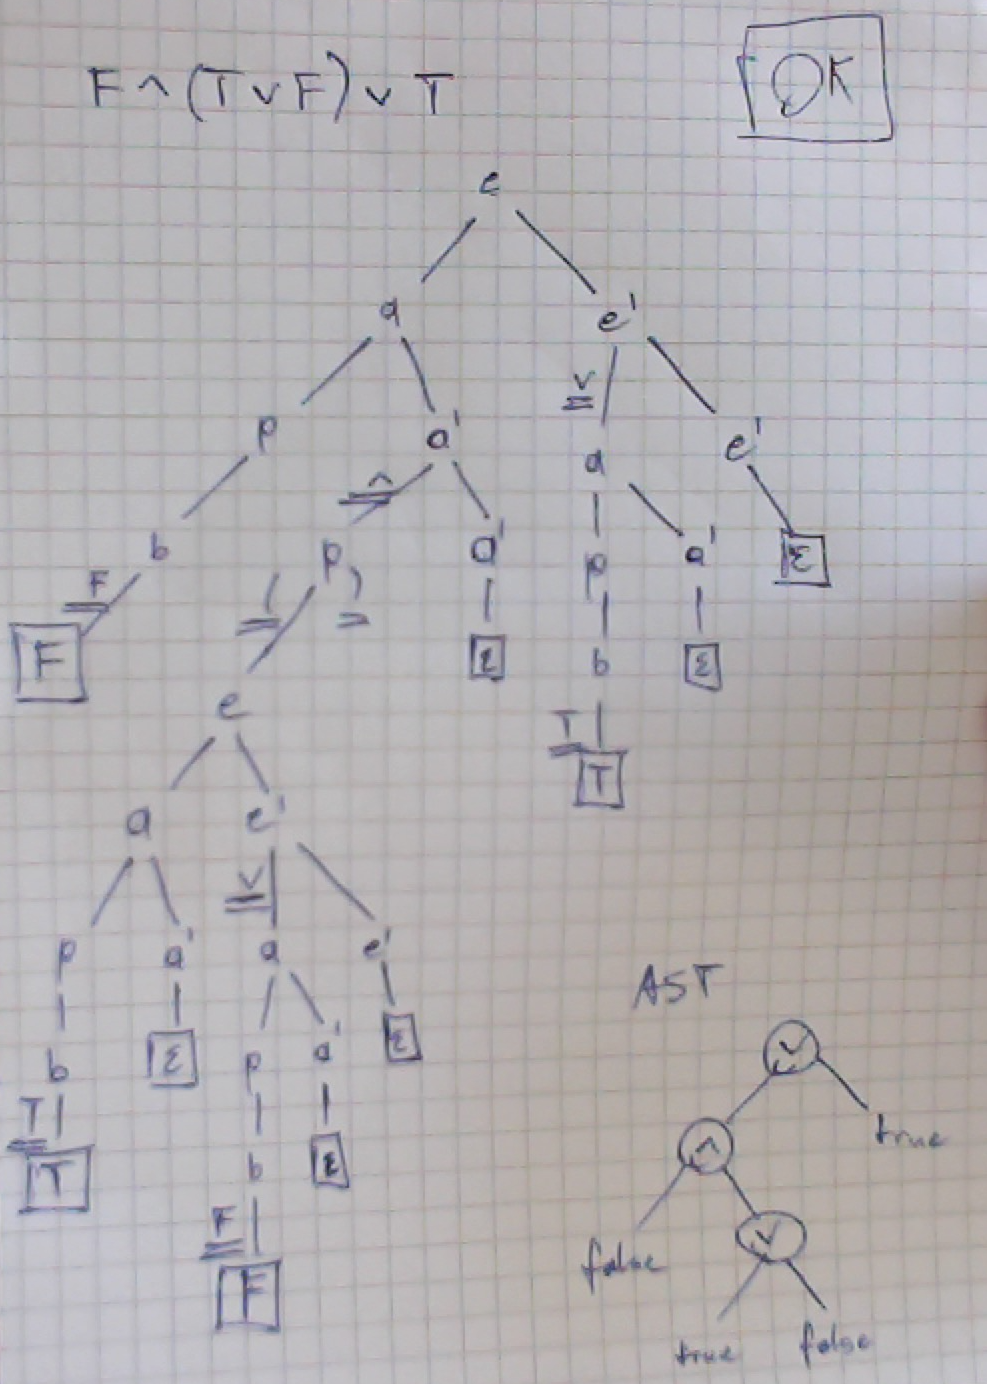 F ∧ (T ∨ F) ∨ T
OK
e
a e'
p a' ∨ a e'
b ∧ p a' p a' ε
F F ( ) ε b ε
e T T
a e'
p a' ∨ a e'
b ε p a' ε
T T b ε
F F
AST
∨
∧ true
false ∨
true false